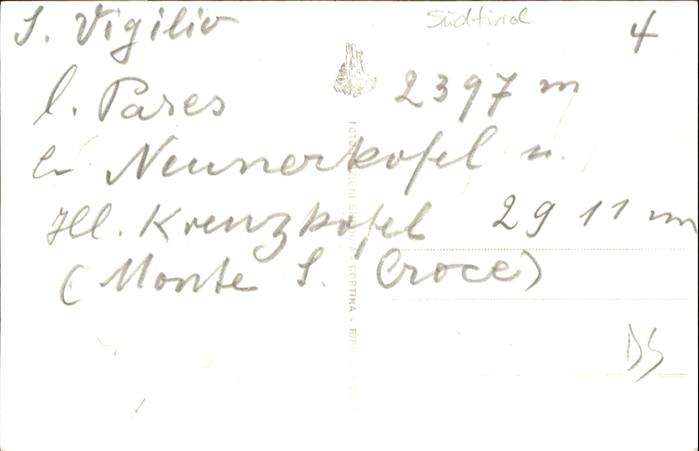 Südtirol
S. Vigilio 4
l. Pares 2397 m
Neunerkofel u.
Hl. Kreuzkofel 2911 m
(Monte S. Croce)
DS
CORTINA